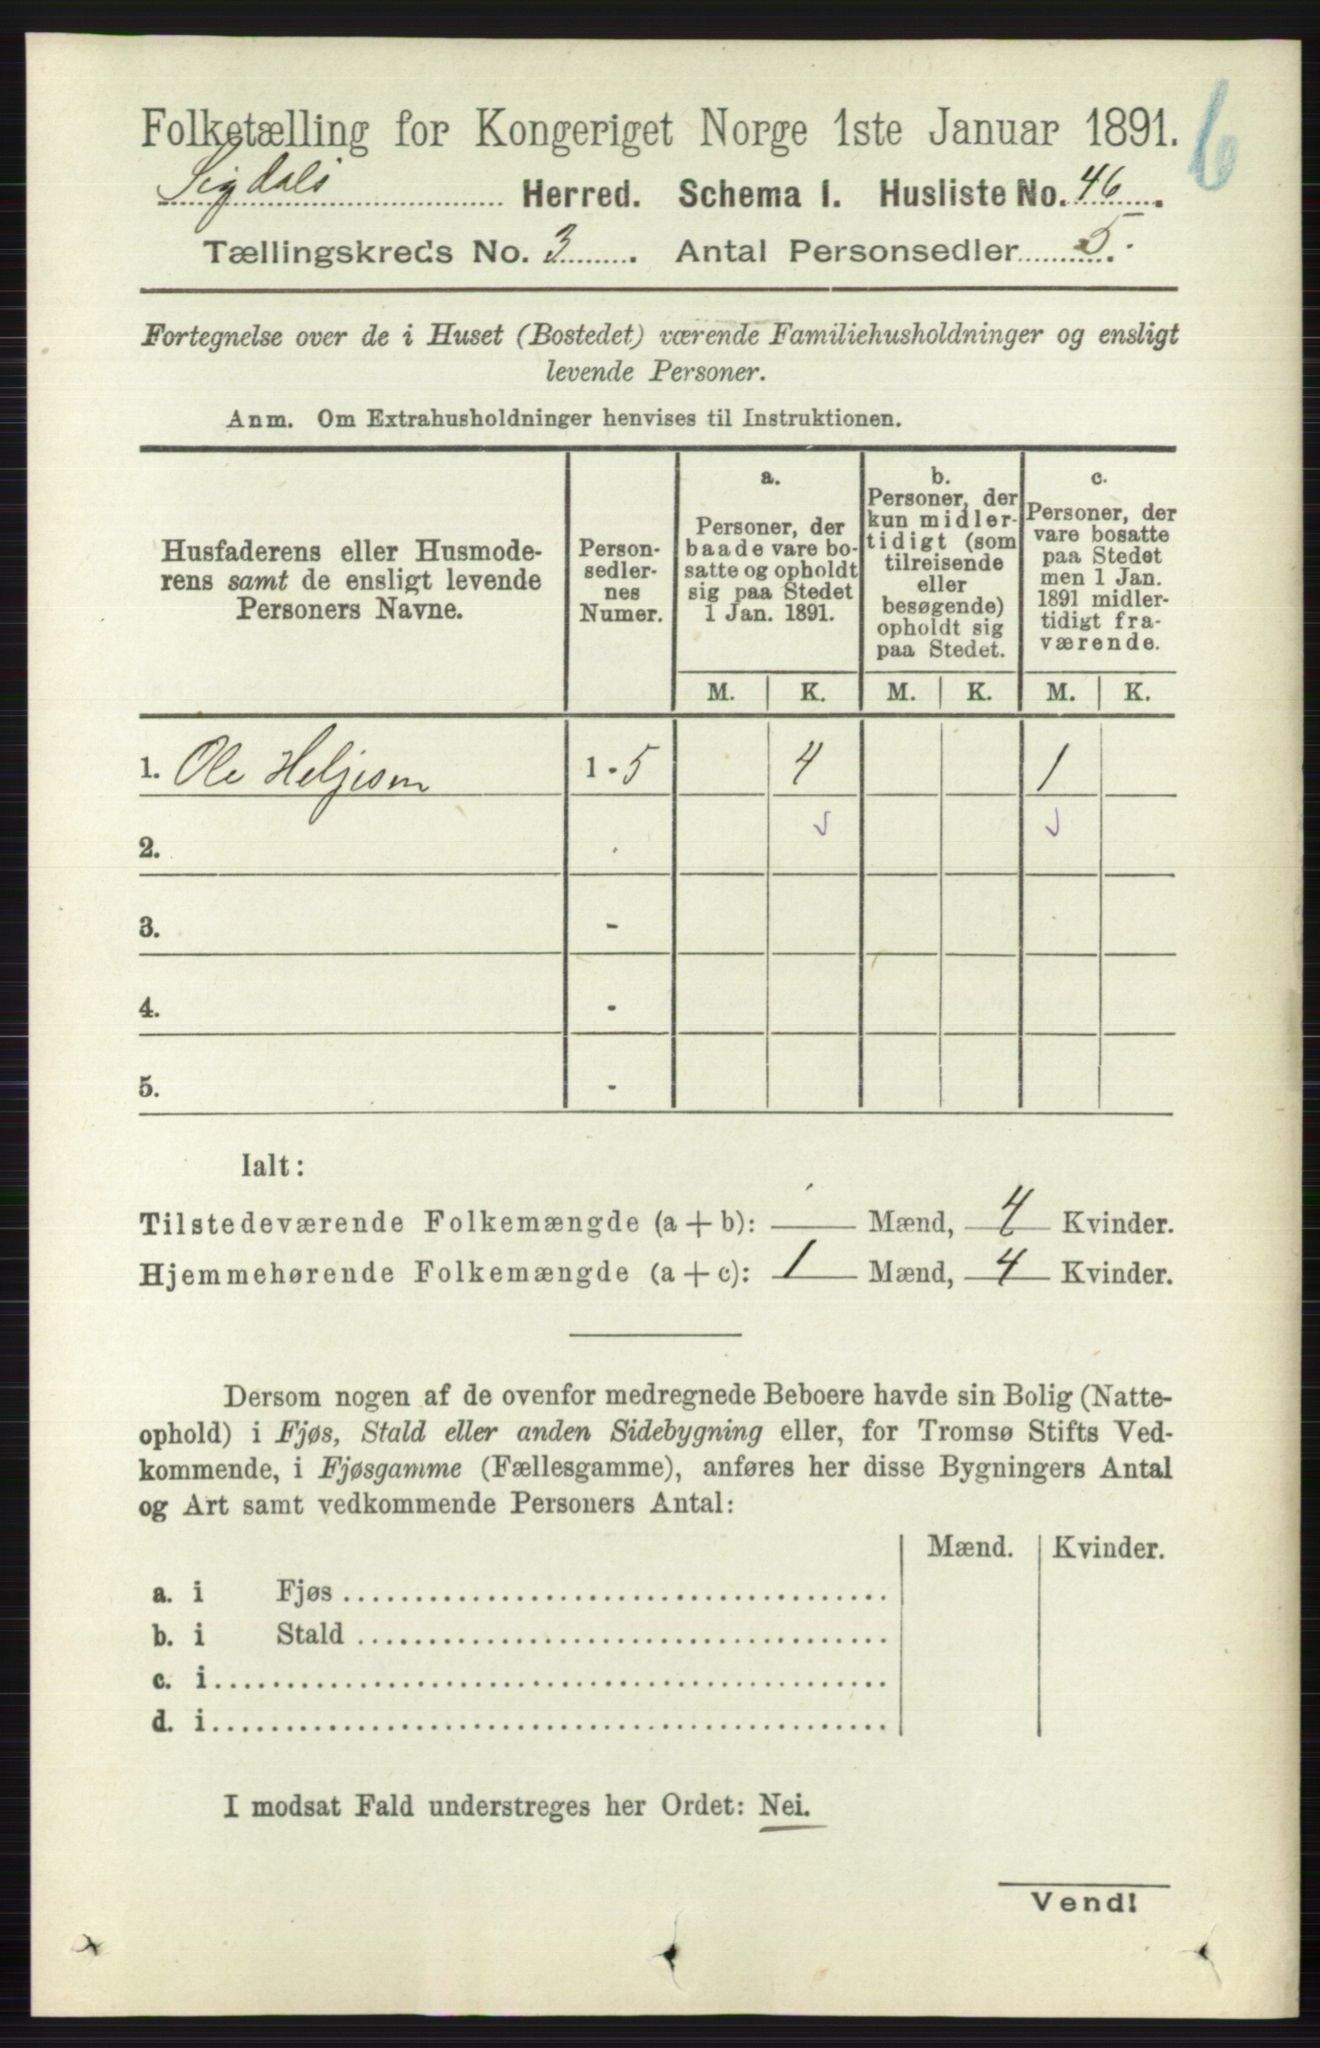 6
Folketælling for Kongeriget Norge 1ste Januar 1891.
Sigdals Herred. Schema I. Husliste No. 46.
Tællingskreds No. 3. Antal Personsedler 5.
Fortegnelse over de i Huset (Bostedet) værende Familiehusholdninger og ensligt
levende Personer.
Anm. Om Extrahusholdninger henvises til Instruktionen.
Husfaderens eller Husmode-
rens samt de ensligt levende
Personers Navne.
Person-
sedler-
nes
Numer.
a.
Personer, der
baade vare bo-
satte og opholdt
sig paa Stedet
1 Jan. 1891.
b.
Personer, der
kun midler-
tidigt (som
tilreisende
eller
besøgende)
opholdt sig
paa Stedet.
c.
Personer, der
vare bosatte
paa Stedet
men 1 Jan.
1891 midler-
tidigt fra-
værende.
M. K. M. K. M. K.
1. Ole Heljesen 1 - 5 4 1
2.
3. -
4. -
5. -
Ialt:
Tilstedeværende Folkemængde (a + b): — Mænd, 4 Kvinder.
Hjemmehørende Folkemængde (a + c): 1 Mænd, 4 Kvinder.
Dersom nogen af de ovenfor medregnede Beboere havde sin Bolig (Natte-
ophold) i Fjøs, Stald eller anden Sidebygning eller, for Tromsø Stifts Ved-
kommende, i Fjøsgamme (Fællesgamme), anføres her disse Bygningers Antal
og Art samt vedkommende Personers Antal:
Mænd. Kvinder.
a. i Fjøs
b. i Stald
c. i
d. i
I modsat Fald understreges her Ordet: Nei.
Vend!